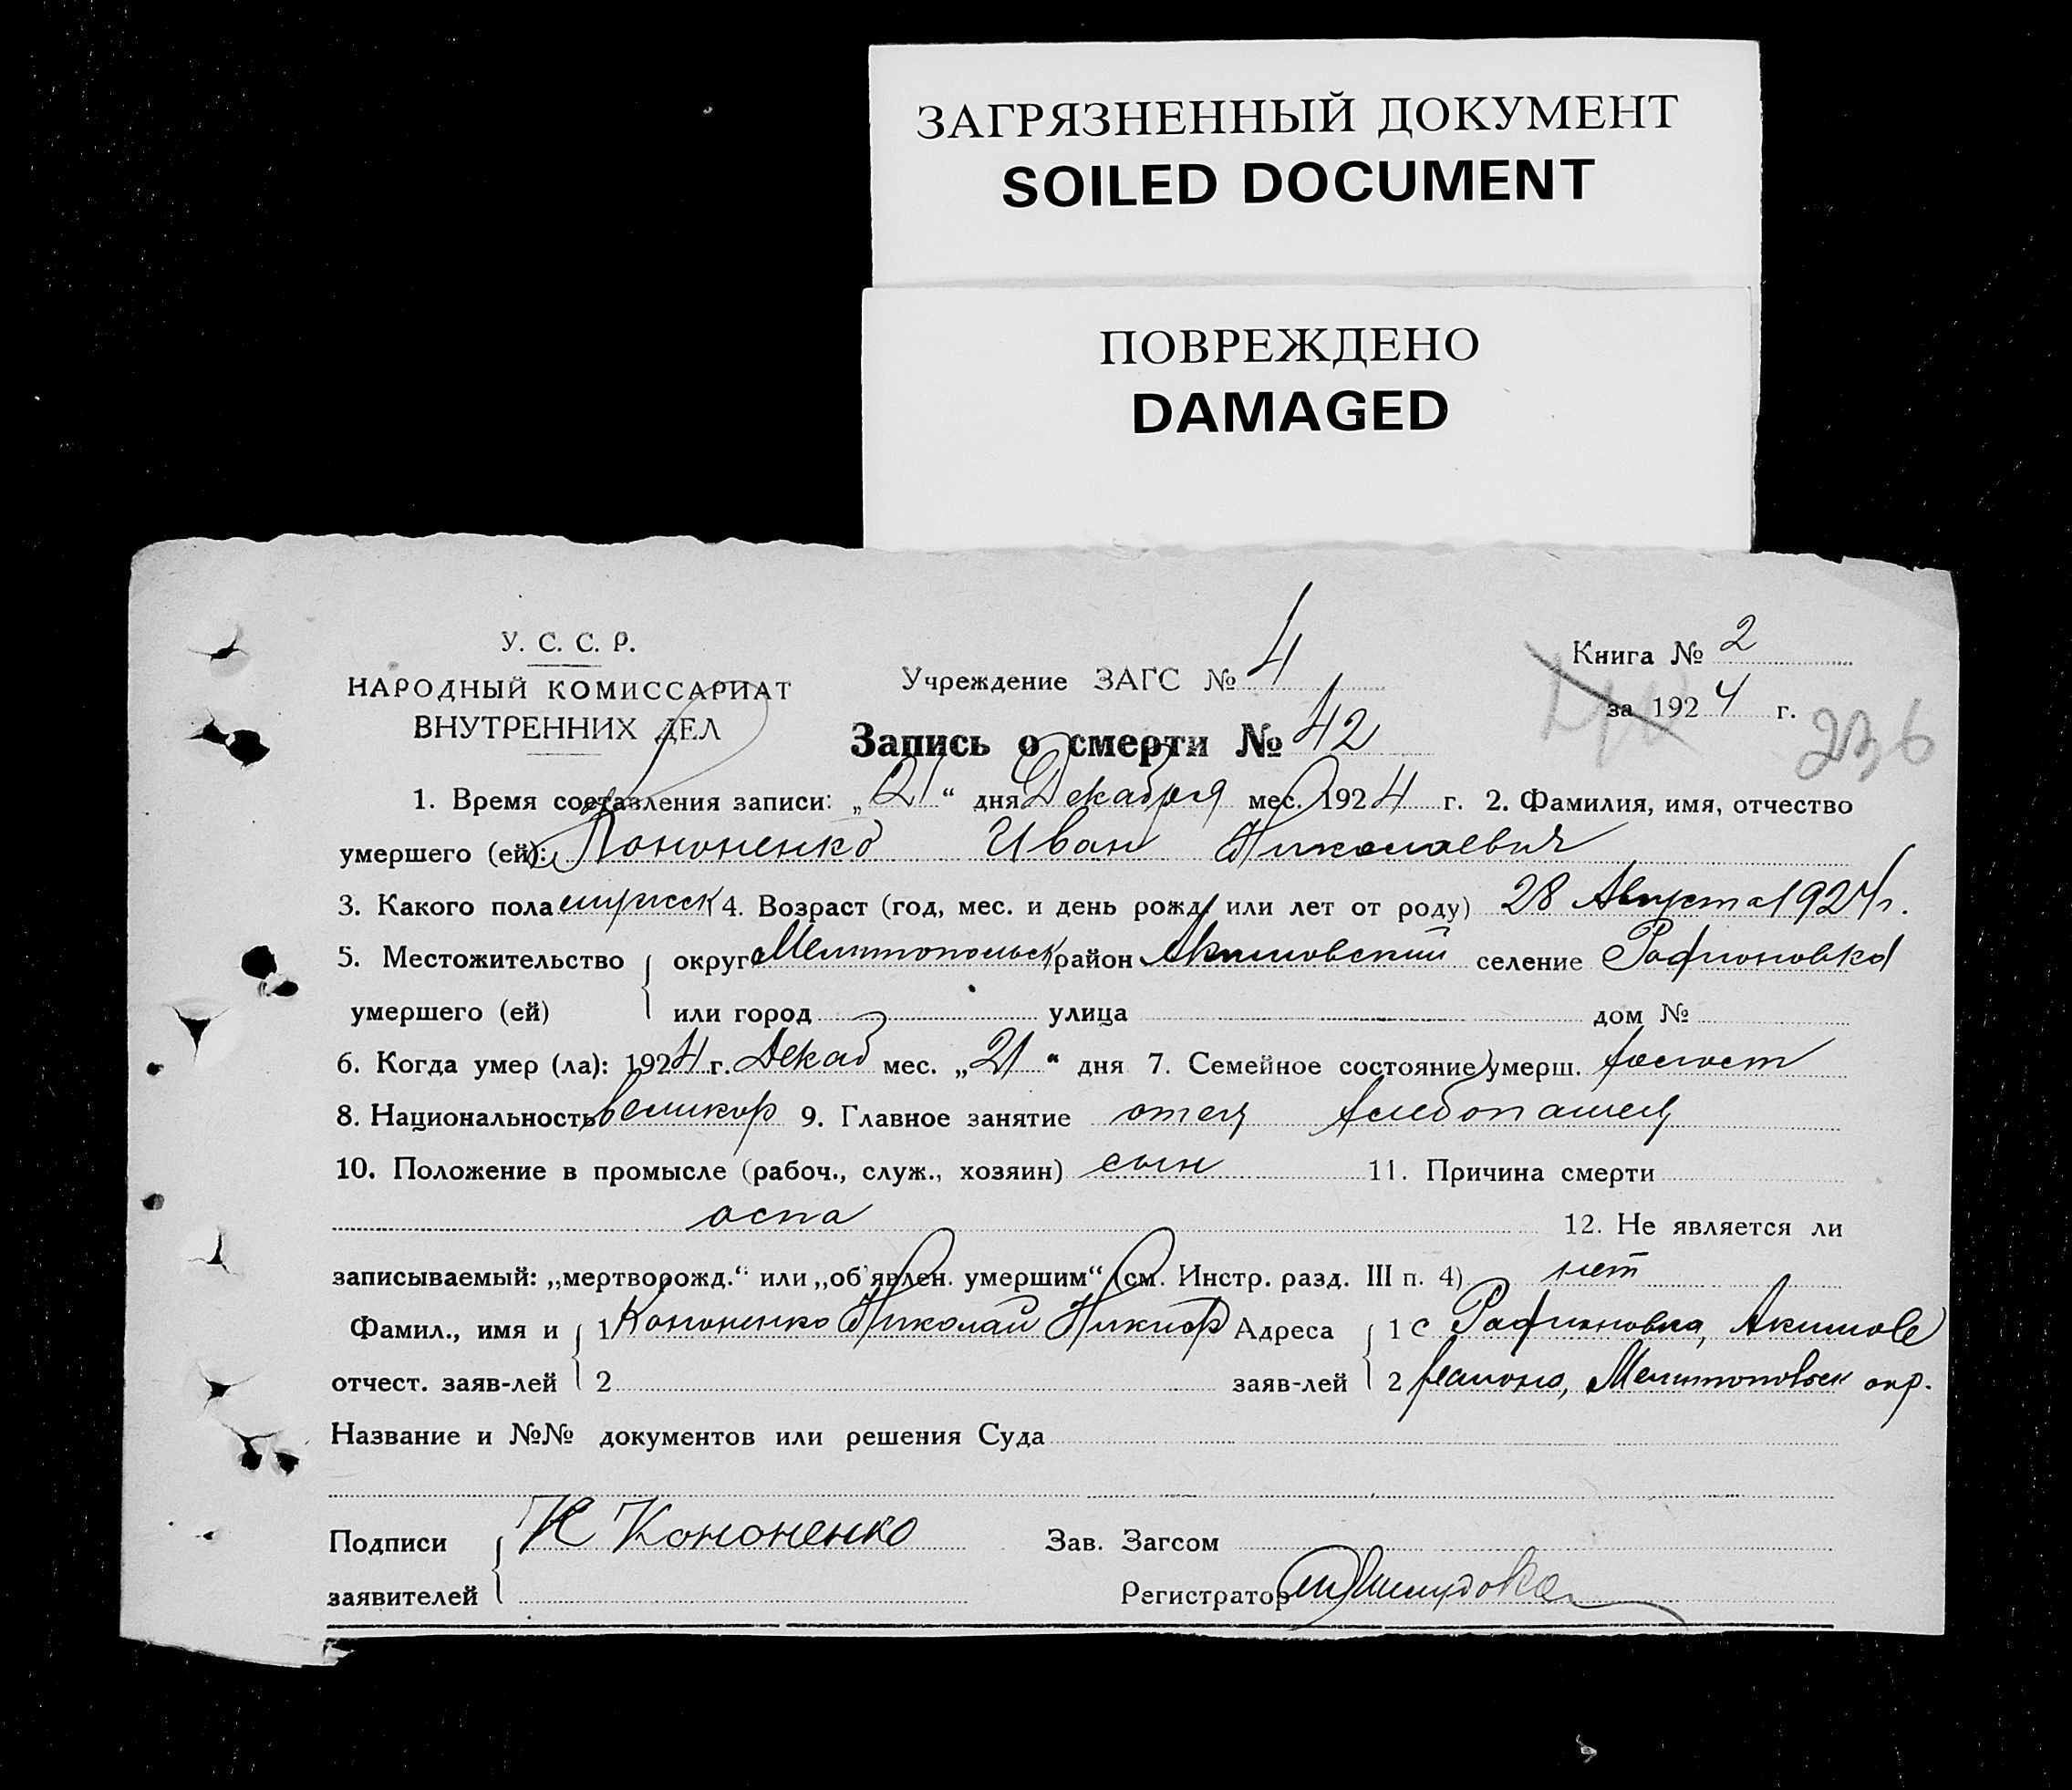 ЗАГРЯЗНЕННЫЙ ДОКУМЕНТ
SOILED DOCUMENT
ПОВРЕЖДЕНО
DAMAGED
У. С. С. Р.
НАРОДНЫЙ КОМИССАРИАТ
ВНУТРЕННИХ ДЕЛ
Учреждение ЗАГС № 4
Книга № 2
за 1924 г.
236
Запись о смерти № 42
1. Время составления записи: „21“ дня Декабря мес. 1924 г. 2. Фамилия, имя, отчество
умершего (ей): Кононенко Иван Николаевич
3. Какого пола мужск 4. Возраст (год, мес. и день рожд. или лет от роду) 28 Августа 1924 г.
5. Местожительство округ Мелитопольск район Акимовский селение Родионовка
умершего (ей) или город улица дом №
6. Когда умер (ла): 1924 г. Декаб мес. „21“ дня 7. Семейное состояние умерш. холост
8. Национальность великор 9. Главное занятие отец хлебопашец
10. Положение в промысле (рабоч., служ., хозяин) сын 11. Причина смерти
оспа 12. Не является ли
записываемый: „мертворожд.“ или „об'явлен. умершим“ (см. Инстр. разд. III п. 4) нет
Фамил., имя и 1 Кононенко Николай Никиф Адреса 1 с Родионовка, Акимов
отчест. заяв-лей 2 заяв-лей 2 района, Мелитопольск окр.
Название и №№ документов или решения Суда
Подписи Н Кононенко Зав. Загсом
заявителей Регистратор